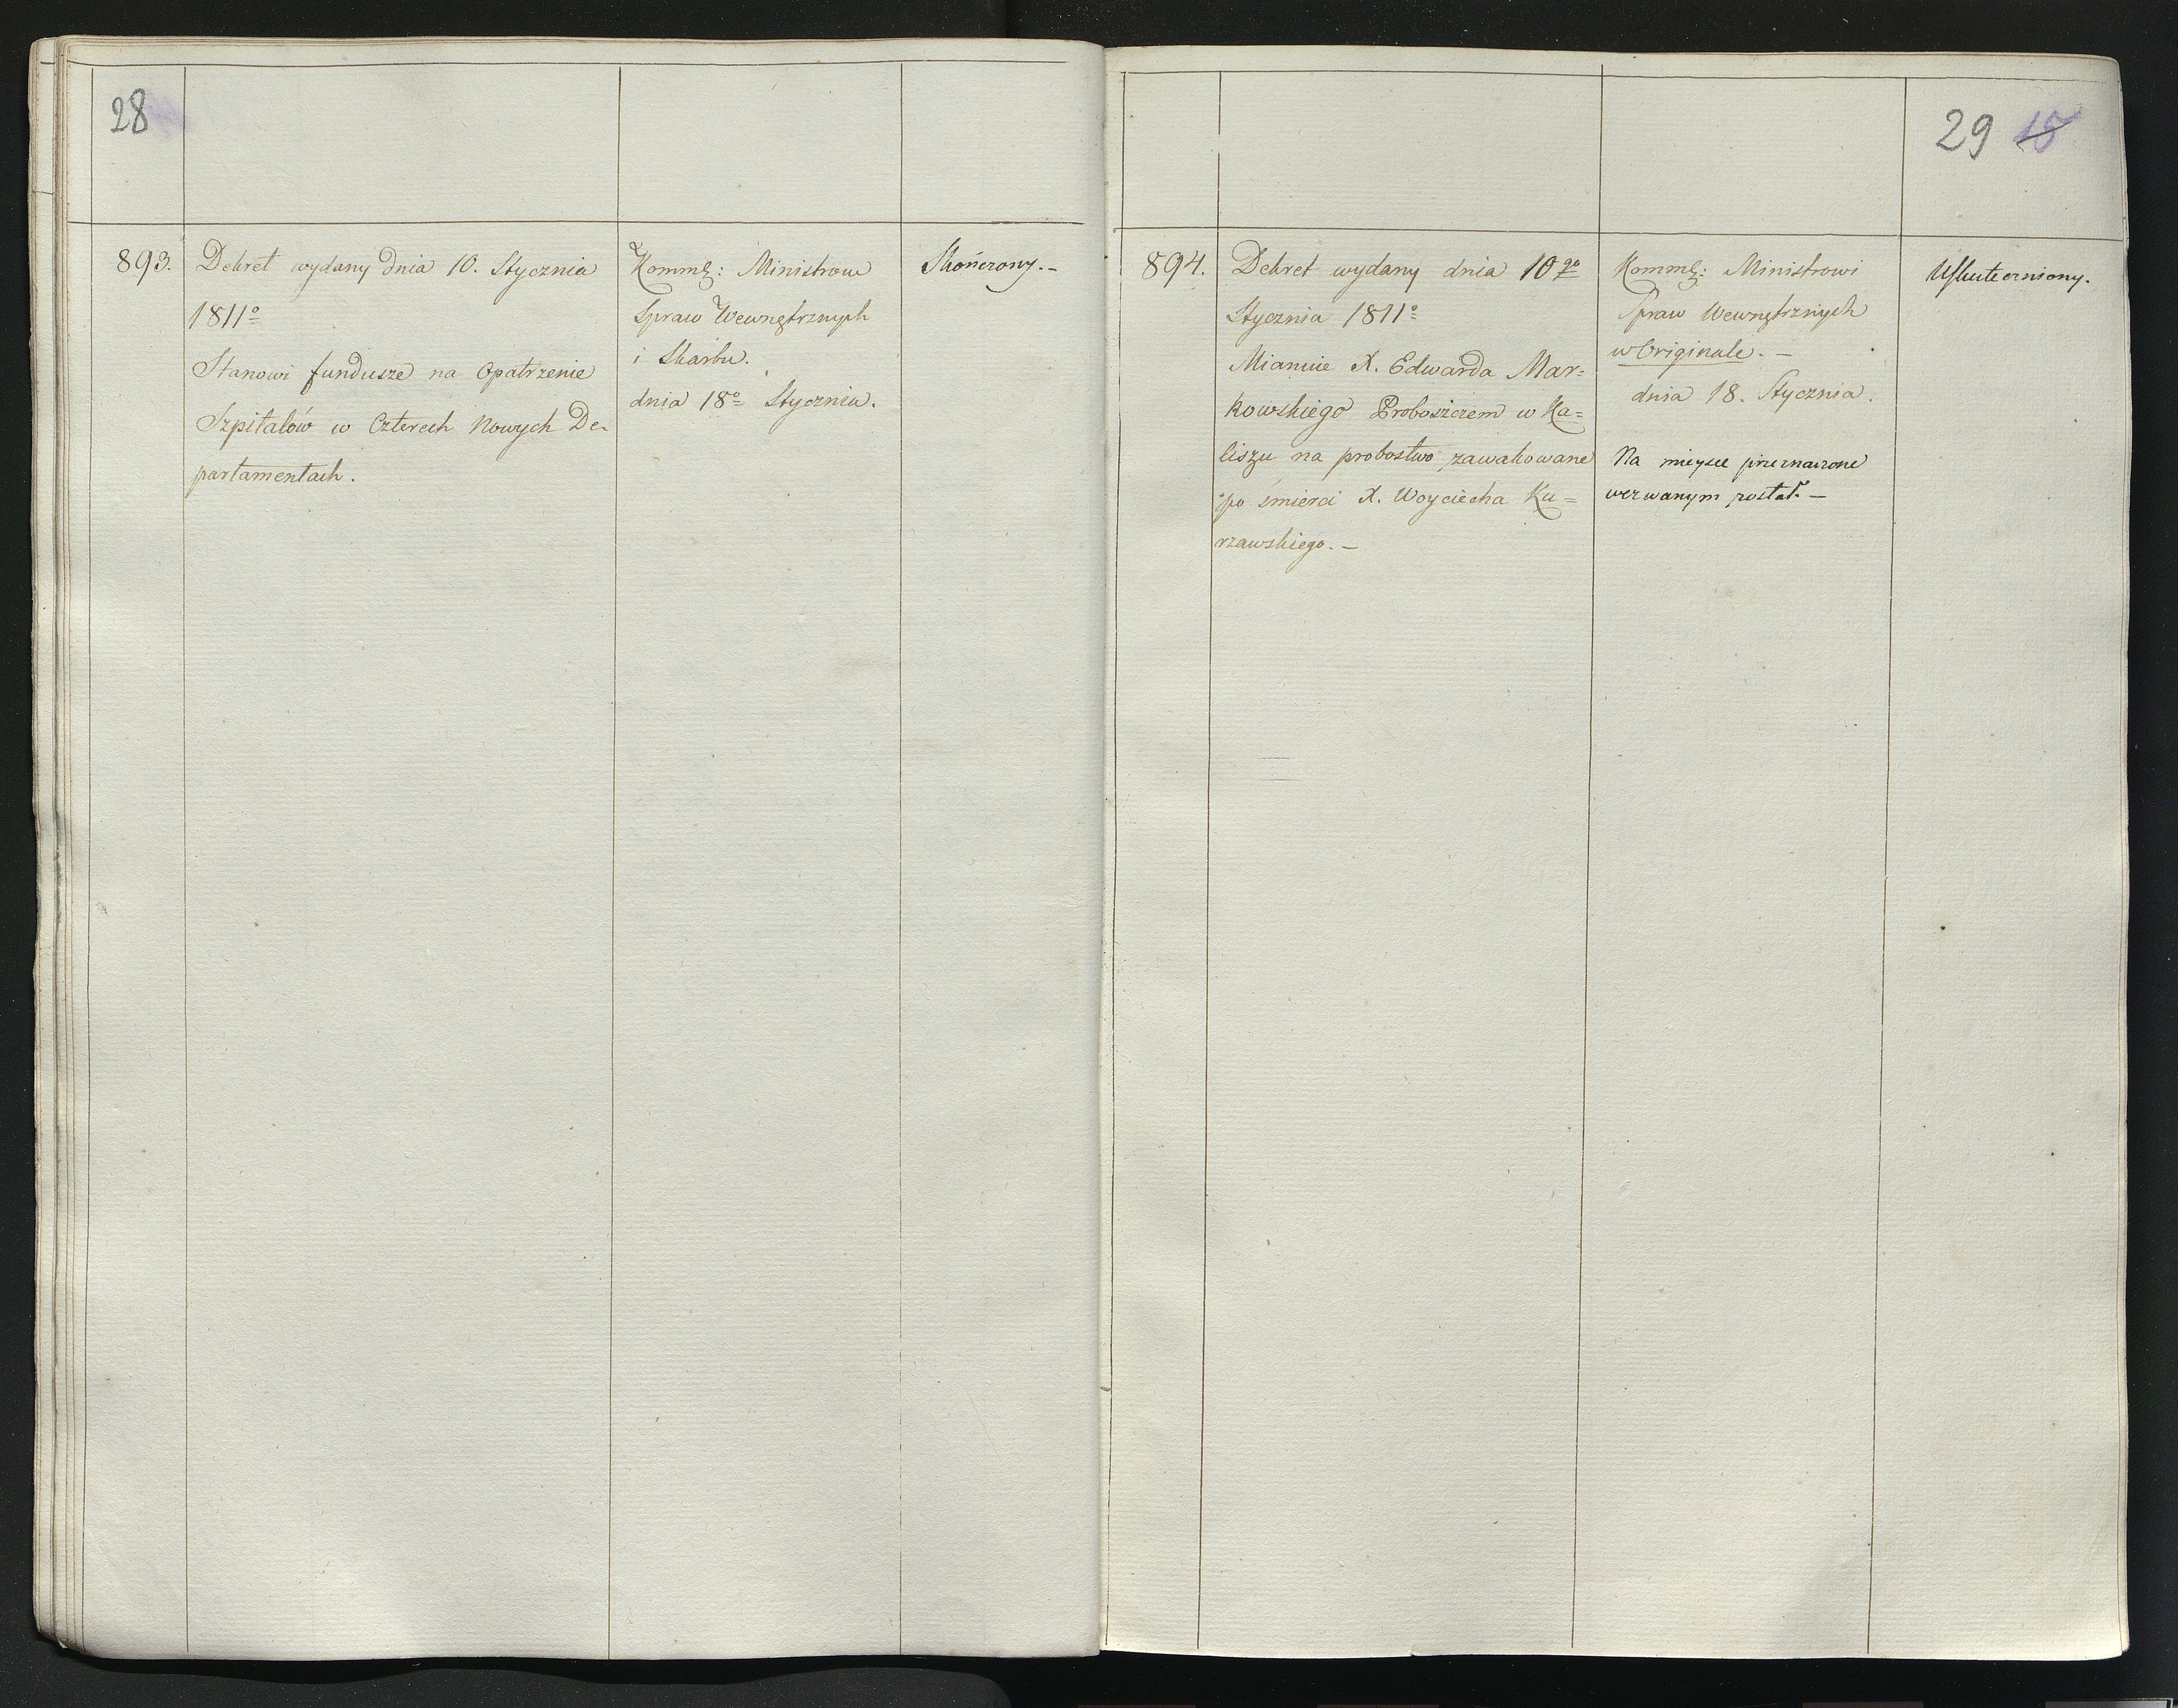 28
893.
Dekret wydany dnia 10. Stycznia
1811o
Stanowi fundusze na Opatrzenie
Szpitalów w Czterech Nowych De-
partamentach.
Ministrow
Spraw Wewnętrznych
i Skarbu.
dnia 18o Stycznia.
Skończony.-
29 15
894.
Dekret wydany dnia 10go
Stycznia 1811o
Mianuie X. Edwarda Mar=
kowskiego Proboszczem w Ka=
liszu na probostwo zawakowane
po śmierci X. Woyciecha Ku=
rzawskiego. -
Ministrowi
Spraw Wewnętrznych
w Originale. -
dnia 18. Stycznia.
Na mieysce przeznaczone
wezwanym został. -
Uskuteczniony.